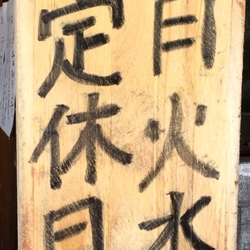 月火水
定休日